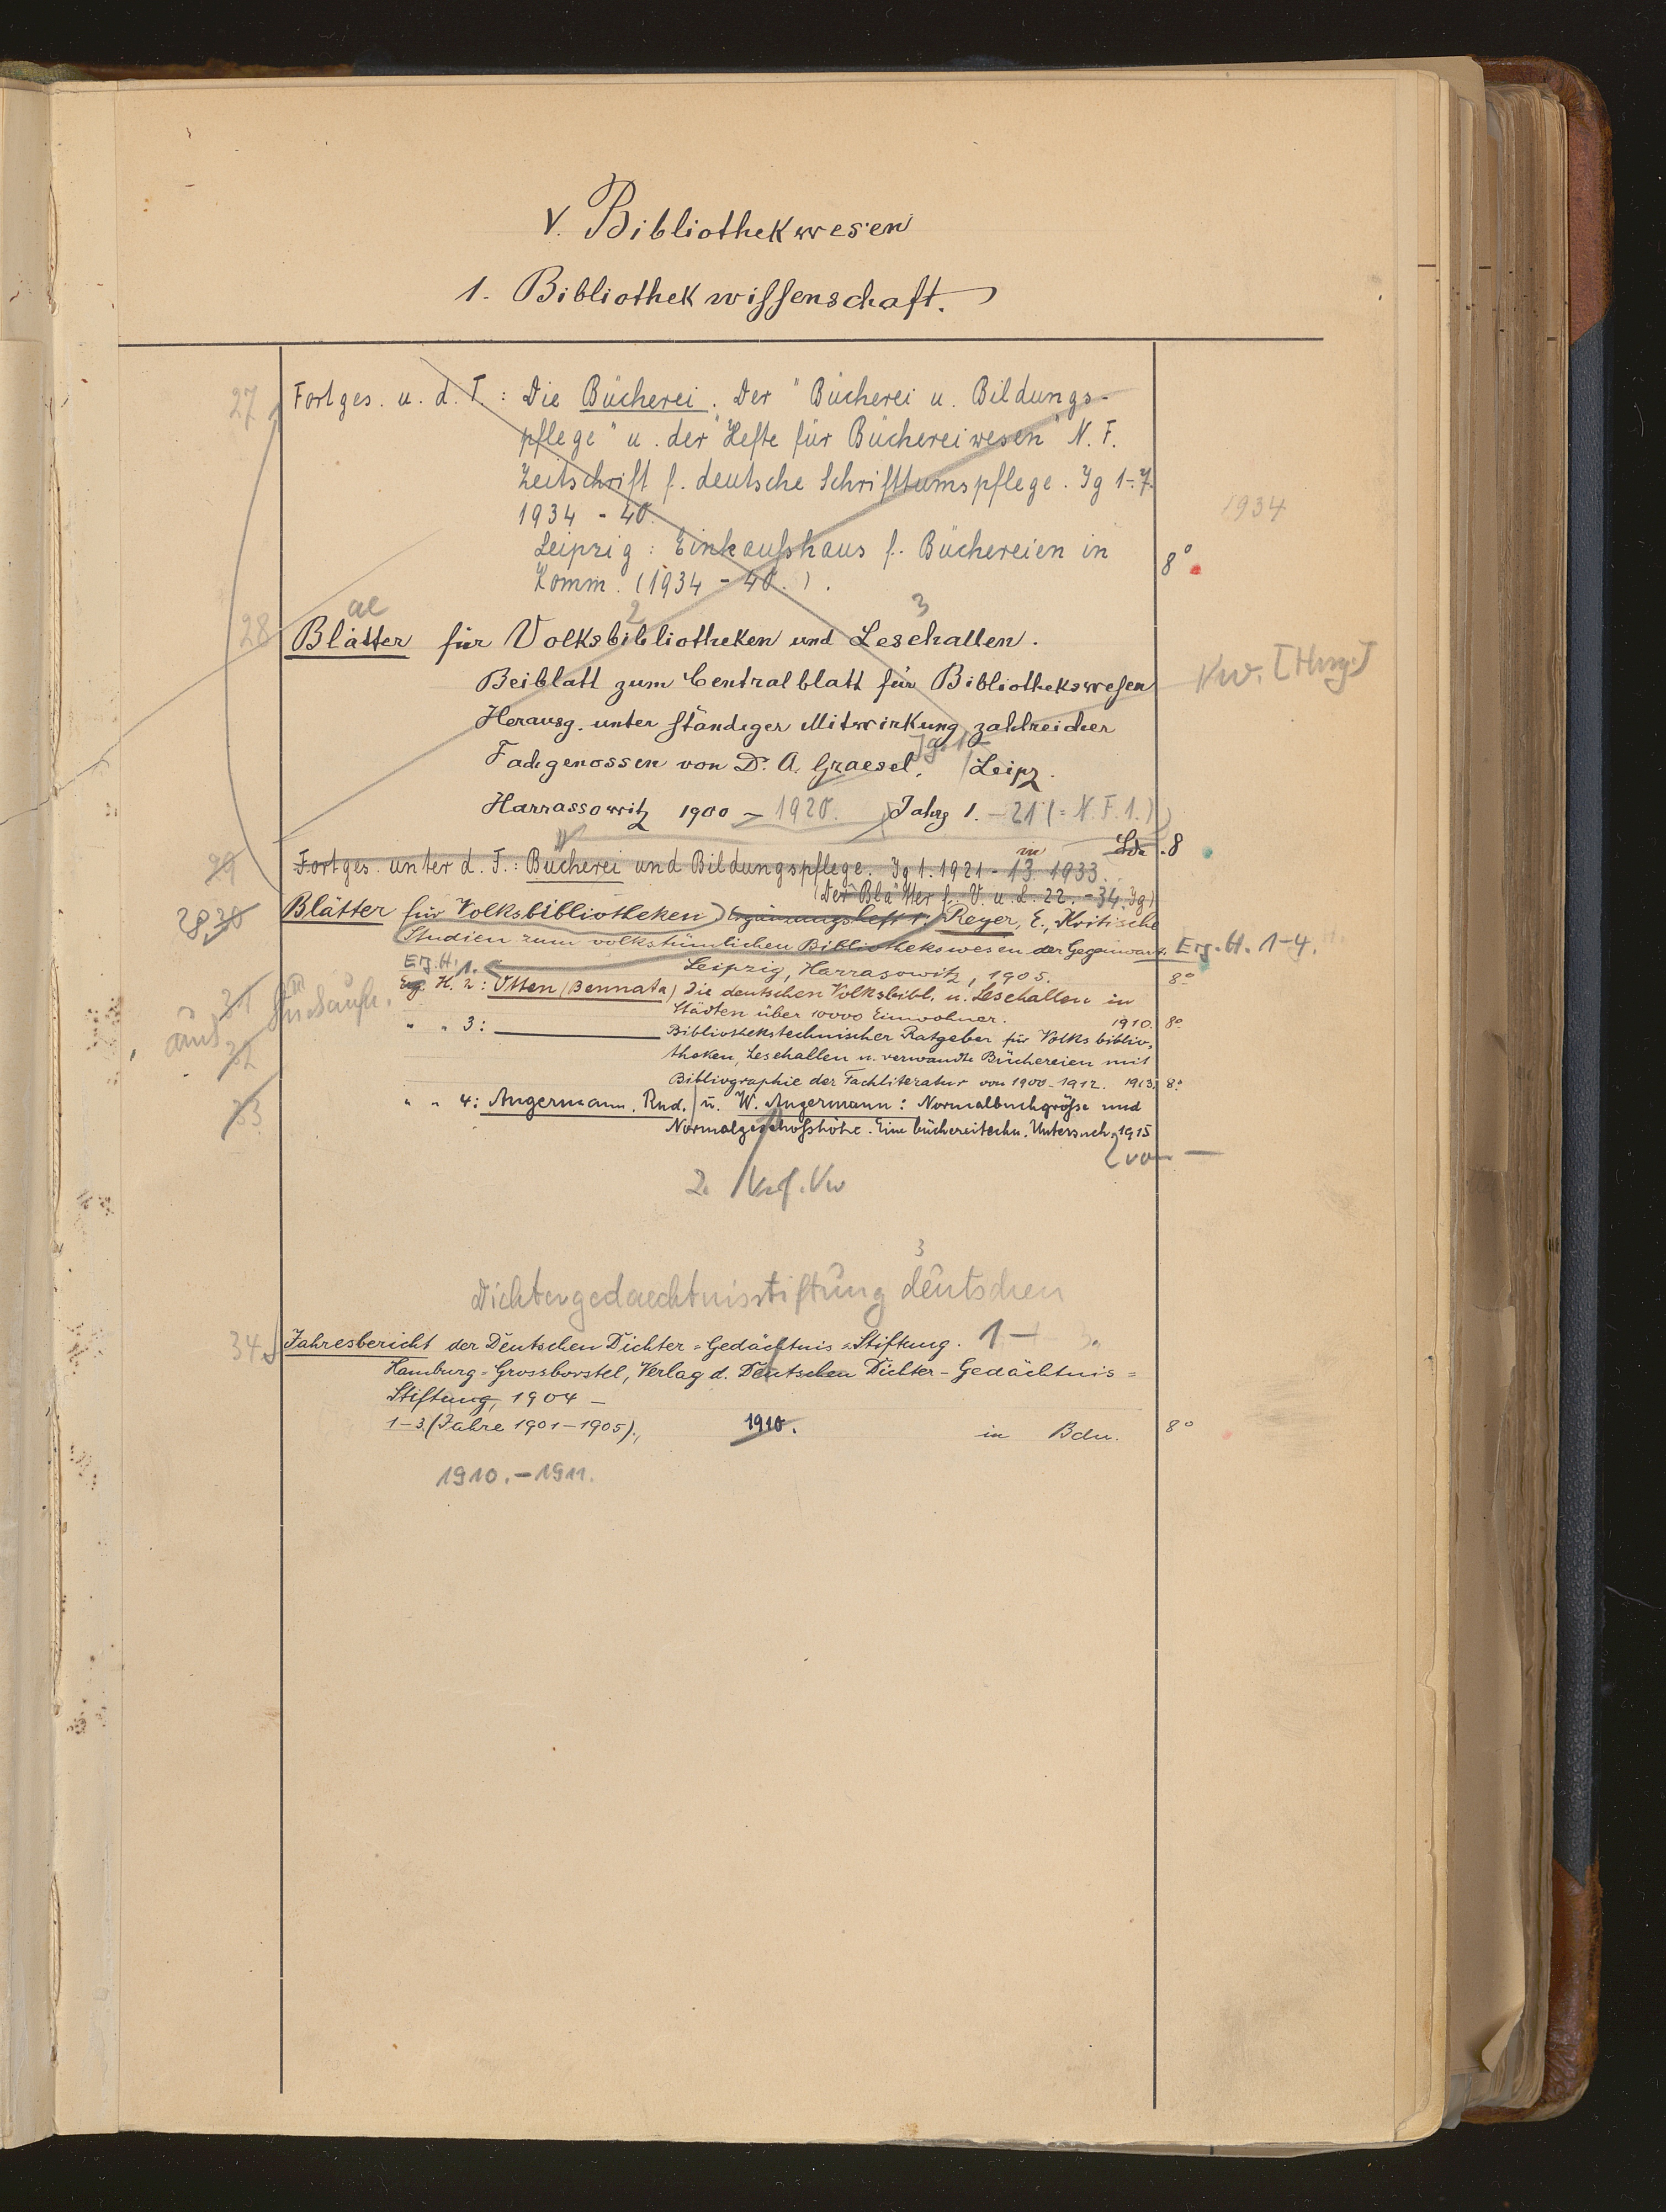 V. Bibliothekwesen
1. Bibliothekwissenschaft.
27 Fortges. u. d. T.: Die Bücherei. Der "Bücherei u. Bildungs-
pflege" u. der "Hefte für Büchereiwesen" N. F.
Zeitschrift f. deutsche Schrifttumspflege. Jg 1-7.
1934 - 40.
1934
Leipzig: Einkaufshaus f. Büchereien in
Komm. (1934 - 40.).
8°
ae 2 3
28 Blätter für Volksbibliotheken und Lesehallen.
Beiblatt zum Centralblatt für Bibliothekswesen
Kw.
Herausg. unter ständiger Mitwirkung zahlreicher
Fachgenossen von Dr. A. Graesel. Jg. 1- Leipz.
Harrassowitz 1900 - 1920. Jahrg 1. - 21 (= N. F. 1.)
in 8
29 Fortges. unter d. T.: Bücherei und Bildungspflege. Jg 1. 1921 - 13. 1933.
(Der Blätter f. V. u. L. 22. - 34. Jg)
28, 30 Blätter für Volksbibliotheken) Ergänzungsheft 1: Reyer, E., Kritische
Studien zum volkstümlichen Bibliothekswesen der Gegenwart. Erg. H. 1-4.
Erg. H. 1. Leipzig, Harrasowitz, 1905. 8°
31 Erg. H. 2: Otten (Bennata) Die deutschen Volksbibl. u. Lesehallen in
Städten über 10000 Einwohner. 1910. 8°
32 " " 3: Bibliothekstechnischer Ratgeber für Volksbiblio-
theken, Lesehallen u. verwandte Büchereien mit
Bibliographie der Fachliteratur von 1900-1912. 1913. 8°
33 " " 4: Angermann, Rud. u. W. Angermann: Normalbuchgröße und
Normalgeschoßhöhe. Eine büchereitechn. Untersuch. 1915
2. Verf. Vw
3
Dichtergedaechtnisstiftung deutschen
34 Jahresbericht der Deutschen Dichter-Gedächtnis-Stiftung. 1-
Hamburg-Grossborstel, Verlag d. Deutschen Dichter-Gedächtnis-
Stiftung, 1904 -
1-3. (Jahre 1901-1905)., 1910. in Bdn. 8°
1910. - 1911.